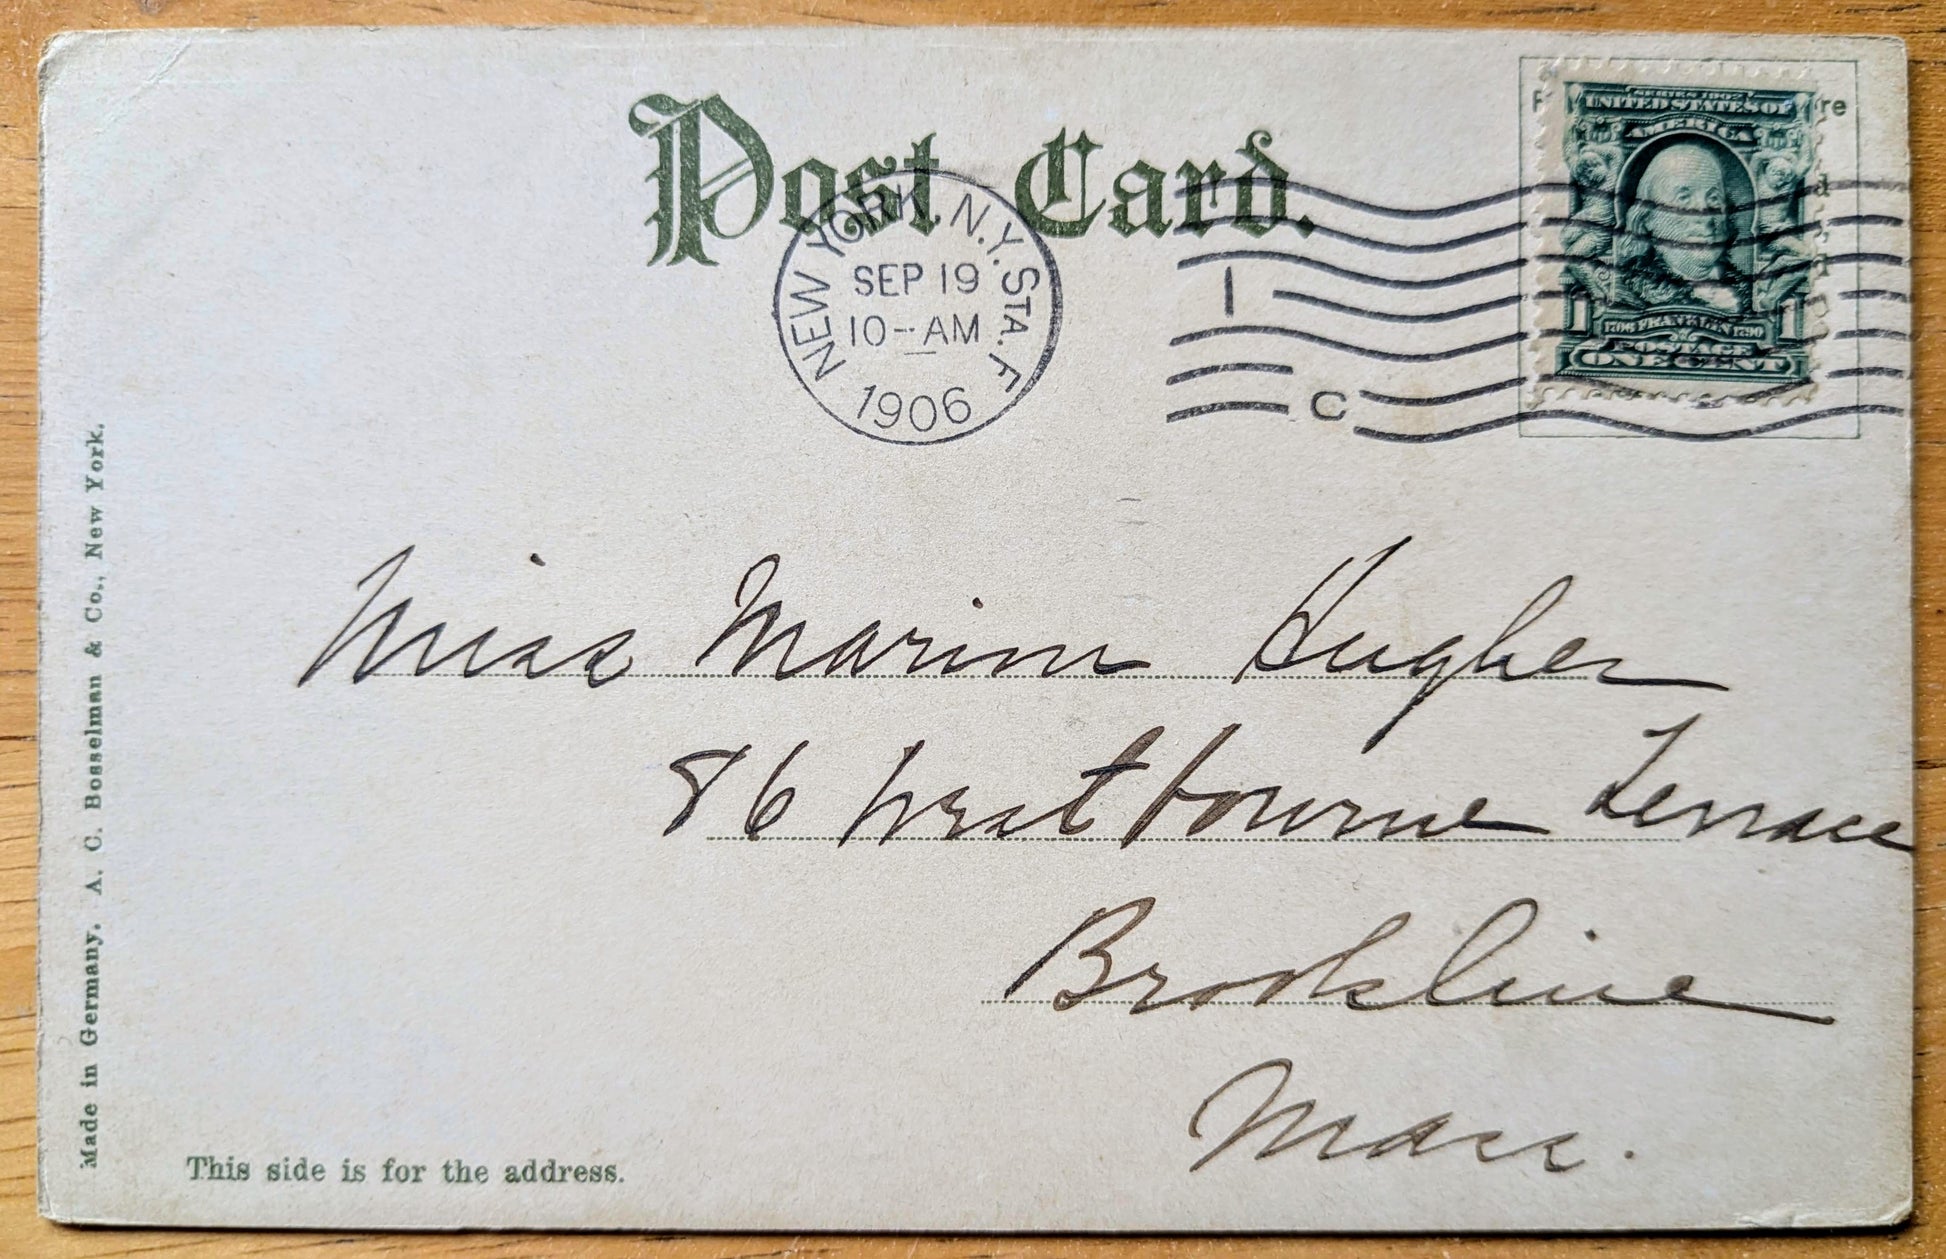 Post Card.
NEW YORK, N.Y. STA. F
SEP 19
10-AM
1906
1
C
re
d
SERIES 1902
UNITED STATES OF
AMERICA
1 1
1706 FRANKLIN 1790
POSTAGE
ONE CENT
Miss Marion Hughes
86 Westbourne Terrace
Brookline
Mass.
Made in Germany. A. C. Bosselman & Co., New York.
This side is for the address.